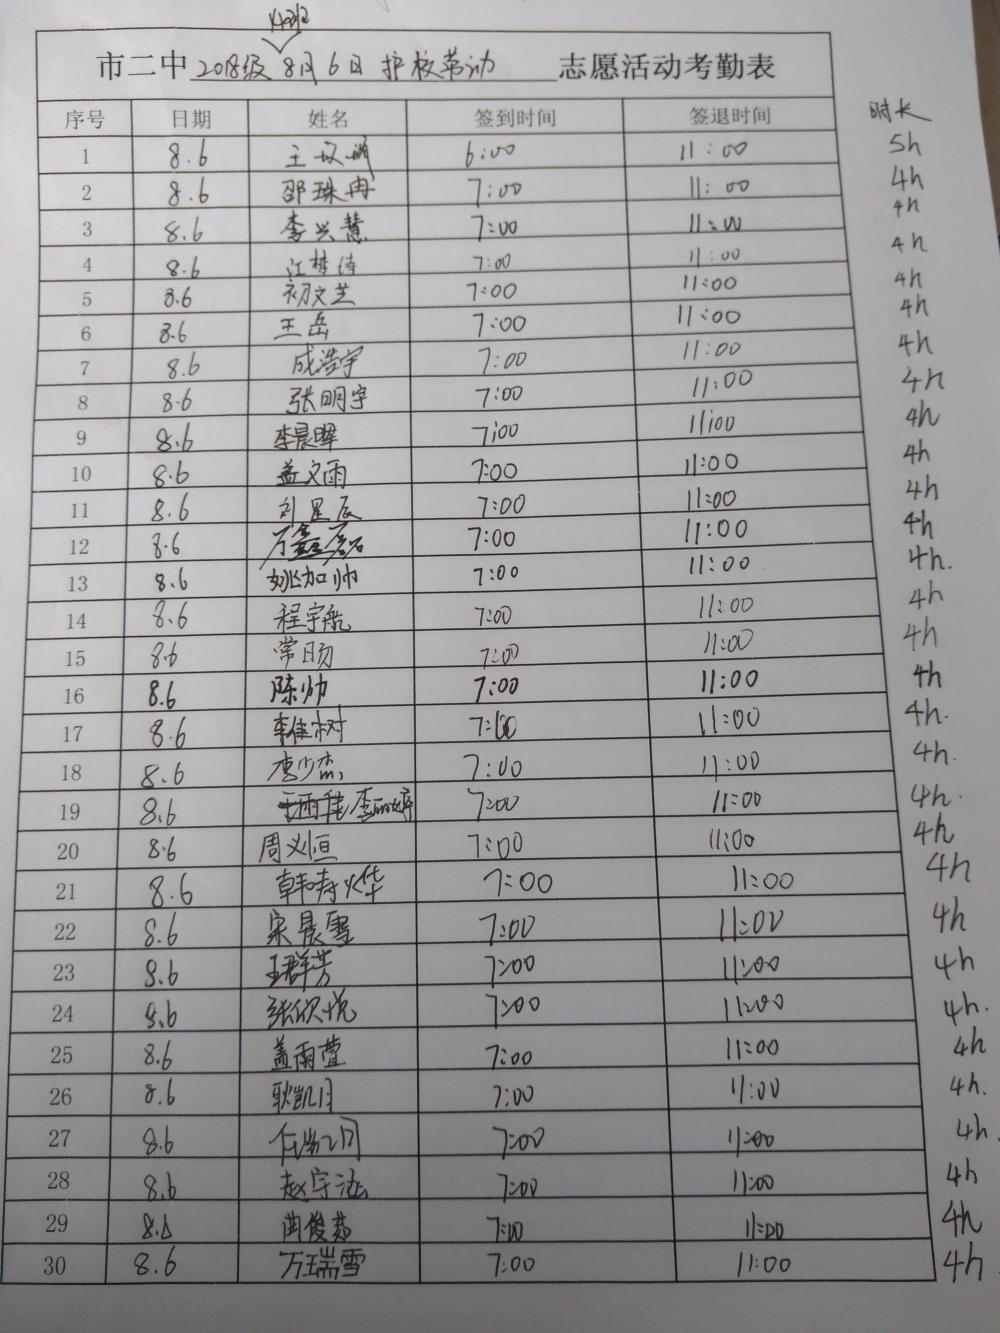 市二中 2018级 8月6日 护校劳动 志愿活动考勤表
序号 日期 姓名 签到时间 签退时间 时长
1 8.6 王 6:00 11:00 5h
2 8.6 邵珠冉 7:00 11:00 4h
3 8.6 李兴慧 7:00 11:00 4h
4 8.6 江梦诗 7:00 11:00 4h
5 8.6 初文芝 7:00 11:00 4h
6 8.6 王岳 7:00 11:00 4h
7 8.6 成浩宇 7:00 11:00 4h
8 8.6 张明宇 7:00 11:00 4h
9 8.6 李晨晖 7:00 11:00 4h
10 8.6 盖文雨 7:00 11:00 4h
11 8.6 刘星辰 7:00 11:00 4h
12 8.6 万鑫磊 7:00 11:00 4h
13 8.6 姚加帅 7:00 11:00 4h.
14 8.6 程宇航 7:00 11:00 4h
15 8.6 常旸 7:00 11:00 4h
16 8.6 陈帅 7:00 11:00 4h
17 8.6 李佳树 7:00 11:00 4h.
18 8.6 李少杰 7:00 11:00 4h.
19 8.6 李 7:00 11:00 4h.
20 8.6 周义恒 7:00 11:00 4h
21 8.6 韩寿烨 7:00 11:00 4h
22 8.6 宋晨雪 7:00 11:00 4h
23 8.6 王群芳 7:00 11:00 4h
24 8.6 张欣悦 7:00 11:00 4h.
25 8.6 盖雨萱 7:00 11:00 4h
26 8.6 耿凯月 7:00 11:00 4h.
27 8.6 任 7:00 11:00 4h.
28 8.6 赵宇涵 7:00 11:00 4h
29 8.6 曲俊茹 7:00 11:00 4h
30 8.6 万瑞雪 7:00 11:00 4h